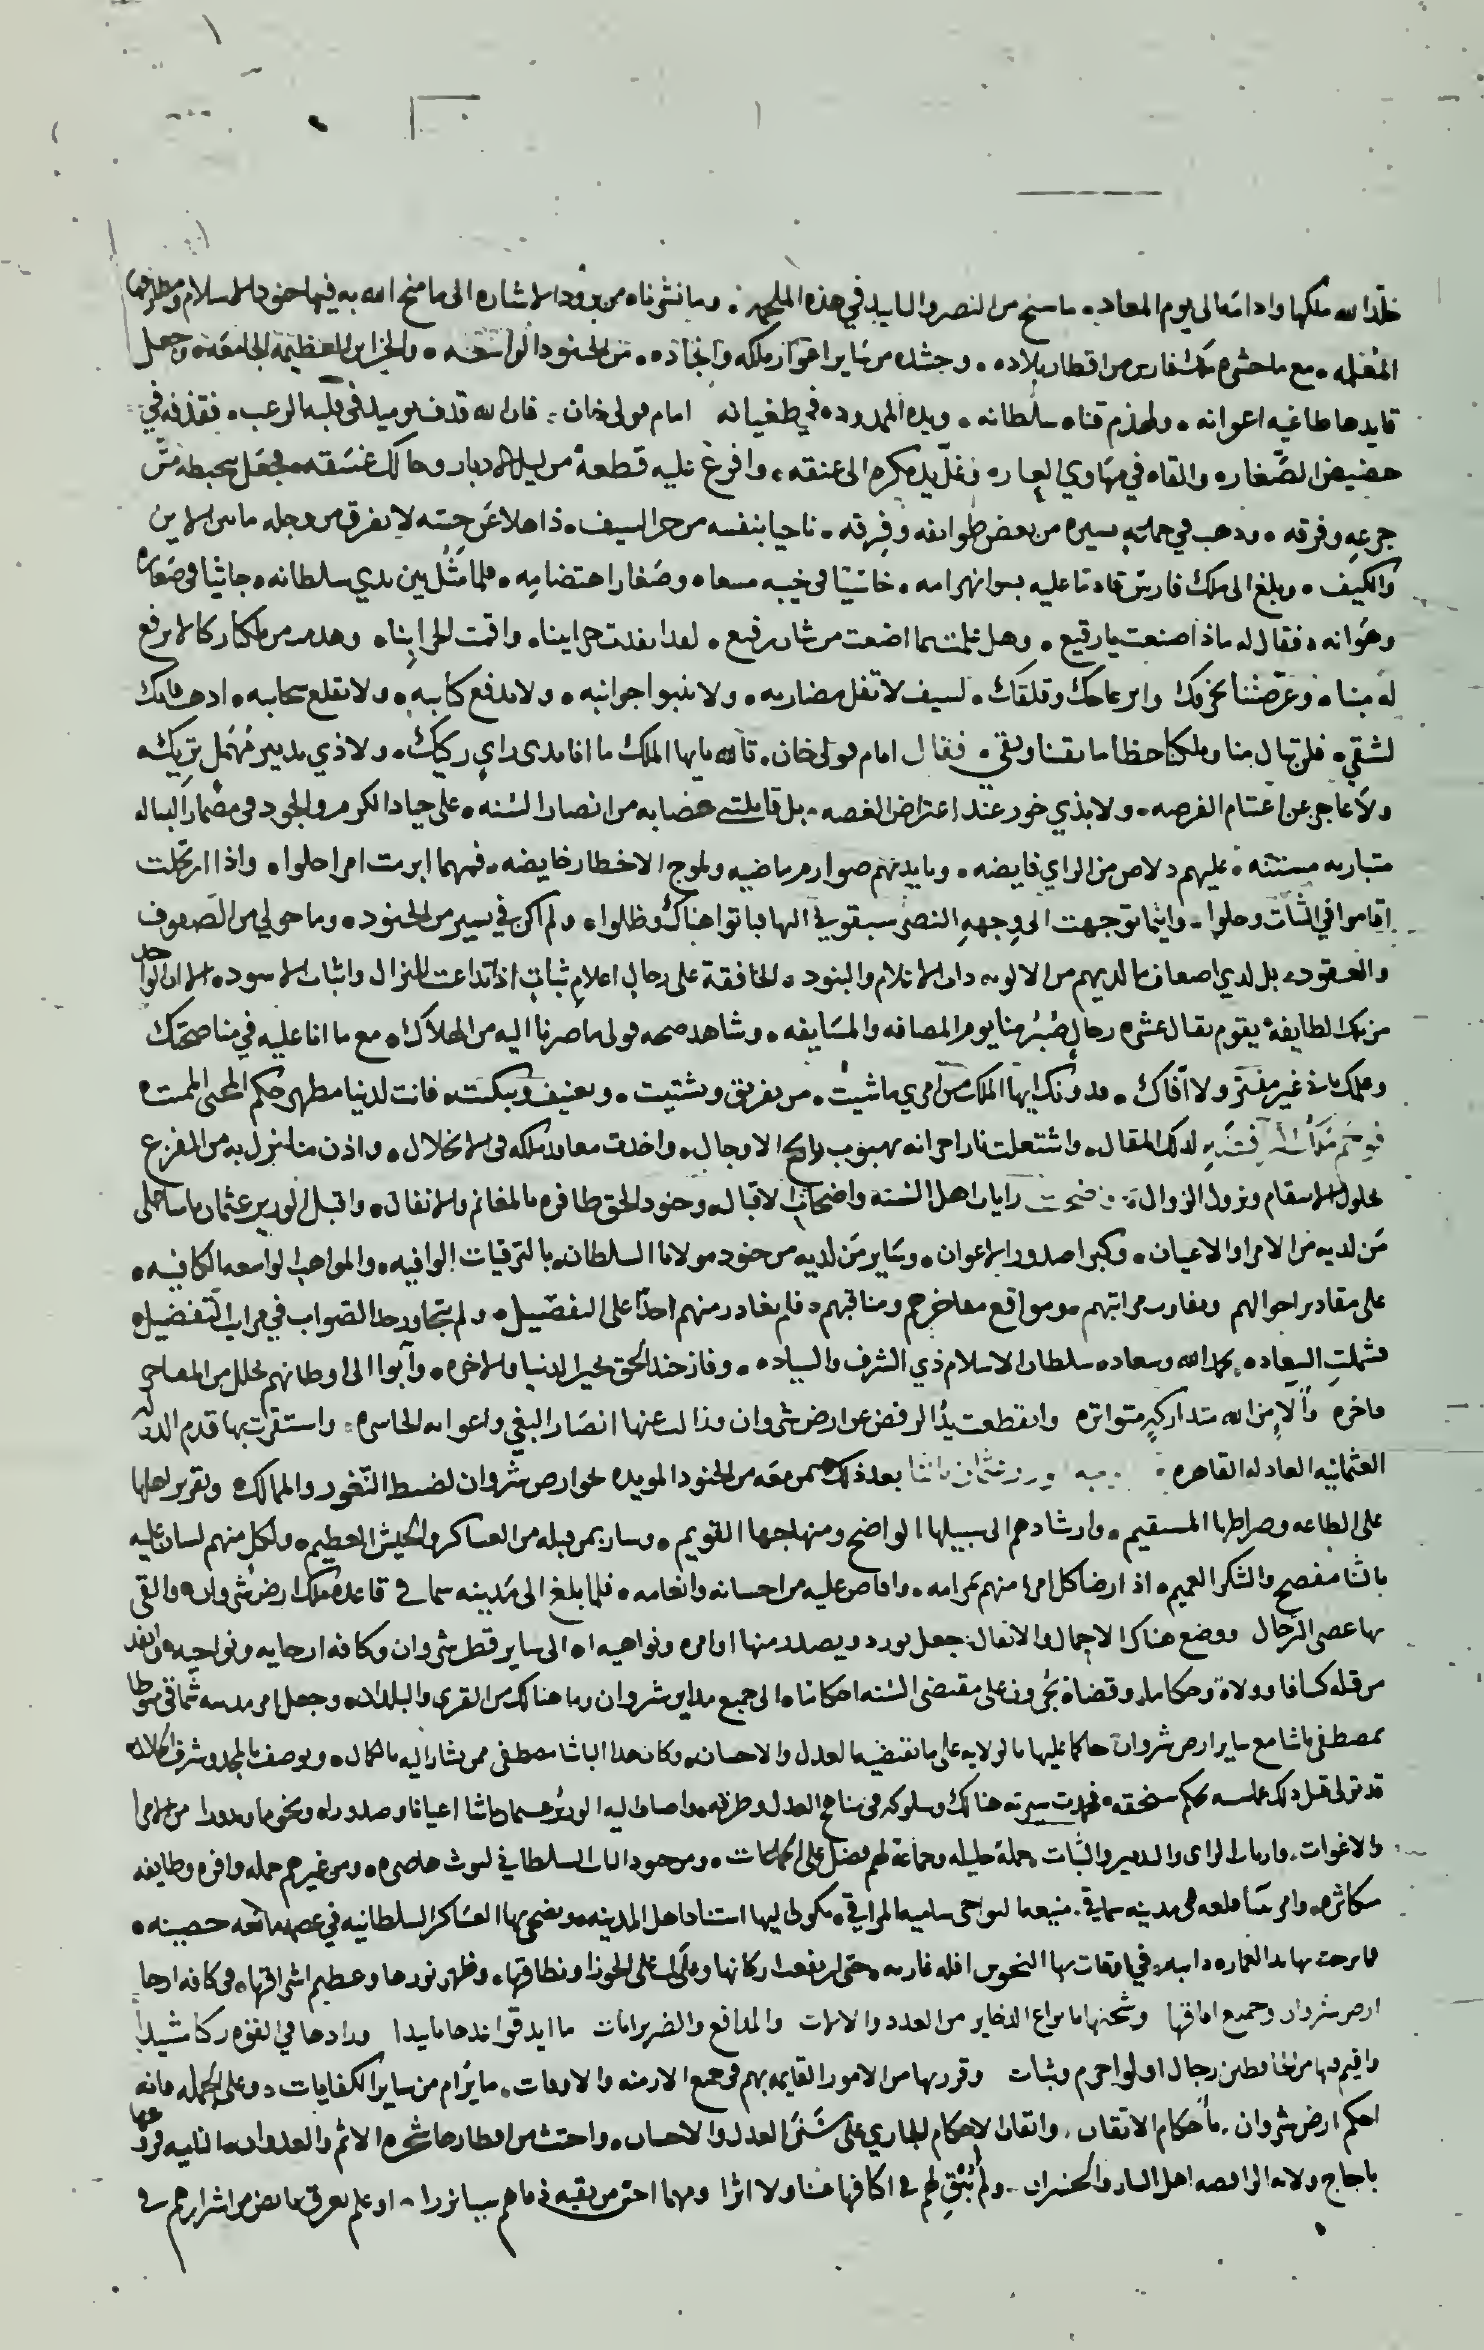 خلد الله ملكها وادامه الى يوم المعاد ٠ ما سنح من النصر والتاييد في هذه الملحمه ٠ وما نشرناه من برود الاشاره الى ما منح الله به فيها جنود الاسلام
المقبله ٠ مع ما حشره ملك فارس من اقطار بلاده ٠ وحشده من ساير اغوار ملكه وانجاده ٠ من الجنود الواسعه ٠ والخزاين العظيمه الجامعه ٠ وجعل
قايدها طاغيه اعوانه ٠ ولهذم قناه سلطانه ٠ ويده الممدوده في طغيانه امام قولي خان ٠ فان الله قذف يوميذ في قلبه الرعب ٠ فقذفه في
حضيض الصغار ٠ والقاه في مهاوي العار ٠ وغل يد مكره الى عنقه ٠ وافرغ عليه قطعة من ليل الادبار وحالك غسقه ٠ فجعل يخبط من
جزعه وفرقه ٠ وذهب في جماعة يسيره من بعض طوايفه وفرقه ٠ ناجيا بنفسه من حر السيف ٠ ذاهلا عن حسه لا يفرق من وجله ما بين الاين
والكيف ٠ وبلغ الى ملك فارس قادما عليه بسوء انهزامه ٠ خاسئا في خيبه مسعاه وصغار اهتضامه ٠ فلما مثل بين يدي سلطانه ٠ جاثيا في صغاره
وهوانه ٠ فقال له ماذا صنعت يا رقيع ٠ وهل علمت بما اضعت من شان رفيع ٠ لقد انفدت خزايننا ٠ واقمت للحرابنا ٠ وهدمت من ملكنا ركنا لا يرفع
له بنا ٠ وعرضتنا بخرقك وانزعاجك وقلقك ٠ لسيف لا تفل مضاربه ٠ ولا تنبو جوانبه ٠ ولا تدفع كتايبه ٠ ولا تقلع سحايبه ٠ اذهب فانك
لشقي ٠ فلن تنال منا وملكنا حظا ما بقينا وبقي ٠ فقال امام قولي خان ٠ تالله يا ايها الملك ما انا بذي راي ركيك ٠ ولا ذي تدبير مهمل تريك ٠
ولا عاجز عن اغتنام الفرصه ٠ ولا بذي خور عند اعتراض الغصه ٠ بل قابلتني عصابه من انصار السنه ٠ على جياد الكر مر والجود في مضمار البساله
متباريه مستنه ٠ عليهم دلاص من الراي فايضه ٠ وبايديهم صوارم ماضيه ولموج الاخطار خايضه ٠ فمهما ابرمت امرا حلوا ٠ واذا ارتحلت
اقاموا في الثبات وحلوا ٠ واينما توجهت الى وجهه النصر سبقوني اليها وباتوا هناك وظلوا ٠ ولم اكن في يسير من الجنود ٠ وما حولي من الصفوف
والعقود ٠ بل لدي اضعاف ما لديهم من الالويه ذات الاعلام والبنود ٠ الخافقة على رجال اعلام ثبات اذا تداعت للنزال وثبات الاسود ٠ الا ان الواحد
من تلك الطايفة يقوم بقتال عشره رجال صبر منا يوم المصافه والمسايفه ٠ وشاهد صحه قولي ما صرنا اليه من الهلاك ٠ مع ما انا عليه في مناصحتك
وعلمك باني غير مفتر ولا افاك ٠ فدونك ايها الملك من امري ما شيت ٠ من تفريق وتشتيت ٠ وتعنيف وتبكيت ٠ فانت لدينا مظهر حكم المحيي المميت ٠
لذلك المقال ٠ واشتعلت نار احزانه بهبوب رياح الاوجال ٠ واخذت معاقد ملكه في الانحلال ٠ واذن ما نزل به من المفزع
بحلول الاسقام ونزول الزوال ٠ رايات اهل السنه واضحاب الاقبال ٠ وجنود الحق ظافره بالمغانم والانفال ٠ واقبل الوزير عثمان باشا على
من لديه من الامرا والاعيان ٠ وكبرا صدور الاعوان ٠ وساير من لديه من جنود مولانا السلطان ٠ بالترقيات الوافيه ٠ والمواهب الواسعه الكافيه ٠
على مقادير احوالهم وتفاوت مراتبهم ومواقع مفاخرهم ومناقبهم ٠ فلم يغادر منهم احدا على التفصيل ٠ ولم يتجاوز حد الصواب في مراتب التفضيل ٠
فشملت السعاده ٠ بحمد الله وسعاده سلطان الاسلام ذي الشرف والسياده ٠ وفاز جند الحق بخير الدنيا والاخره ٠ وآبوا الى اوطانهم بحلل من المعاخر
فاخره وآلاء من الله متداركه متواتره وانقطعت يد الرفض عن ارض شروان وذابت عنها انصار البغي واعوانه الخاسره ٠ واستقرت بها قدم الدوله
العثمانيه العادله القاهره ٠ بعد ذلك بمن معه من الجنود المويده نحو ارض شروان لضبط الثغور والممالك ٠ وتقرير اهلها
على الطاعه وصراطها المستقيم ٠ وارشادهم الى سبيلها الواضح ومنهاجها القويم ٠ وسار بمن قبله من العساكر والجيش العظيم ٠ ولكل منهم لسان عليه
بالثنا مفصح والشكر العميم ٠ اذ ارضا كل امرء منهم بمرامه ٠ وافاض عليه من احسانه وانعامه ٠ فلما بلغ الى مدينه سماخي قاعده ملك ارض شروان ٠ والقى
بها عصى الترحال ووضع هناك الاحمال والاثقال ٠ جعل يورد ويصدر منها اوامره ونواهيه ٠ الى ساير قطر شروان وكافه ارجايه ونواحيه ٠ وانفذ
من قبله كشافا وولاة وحكاما ٠ وقضاة يجرون على مقتضى السنه احكاما ٠ الى جميع مداين شروان وما هنالك من القرى والبلدان ٠ وجعل امر مدينه شماخي منوطا
بمصطفى باشا مع ساير ارض شروان حاكما عليها بالولايه على ما تقتضيه العدل والاحسان ٠ وكان هذا الباشا مصطفى ممن يشار اليه بالكمال ٠ ويوصف بالمجد وشرف الخلال
قد تولى قبل ذلك بحكم سنجقه فحمدت سيرته هنالك وسلوكه في مناهج العدل وطرقه ٠ واضاف اليه الوزير عثمان باشا اعيانا وصدورا ٠ ونجوما وبدورا من الامرا
والاغوات ٠ وارباب الراي والتدبير والثبات ٠ جملة جليله وجماعة لهم فضل على الجماعات ٠ ومن جنود الباب السلطاني ليوث هاصره ٠ ومن غيرهم جمله وافره وطايفه
متكاثره ٠ وامر ببنا قلعه في مدينه سماخي ٠ منيعه النواحي ساميه المراقي ٠ يكون اليها استناد اهل المدينه ٠ ويضحى بها العساكر السلطانيه في عصمه مانعه حصينه ٠
فما برحت بها يد العماره دايبه ٠ في اوقات بها النحوس افله غاربه ٠ حتى ارتفعت اركانها وعلت على الجوزا ونطاقها ٠ وظهر نورها وعظيم اشراقها ٠ في كافه ارجا
ارض شروان وجميع افاقها وشحنها بانواع الذخاير من العدد والالات والمدافع والضربزانات ما ايد قواعدها تاييدا وزادها في القوه ركنا شديدا
واقيم فيها من الحافظين رجال اولوا حزم وثبات وقرر بها من الامور القايمه بهم في جميع الازمنه والاوقات ٠ ما يرام من ساير الكفايات ٠ وعلى الجمله فانه
احكم ارض شروان ٠ باحكام الاتقان ٠ واتقان الاحكام الجاري على سنن العدل والاحسان ٠ واجتث من اقطارها شجره الاثم والعدوان ٠ النابيه فروعها
باجاج ولاه الرافضه اهل النار والخسران ٠ ولم يبق لهم في اكنافها عينا ولا اثرا ومهما احس من بقيه في ما هم سببا نزرا ٠ او علم بعرق نابض من اشرارهم في